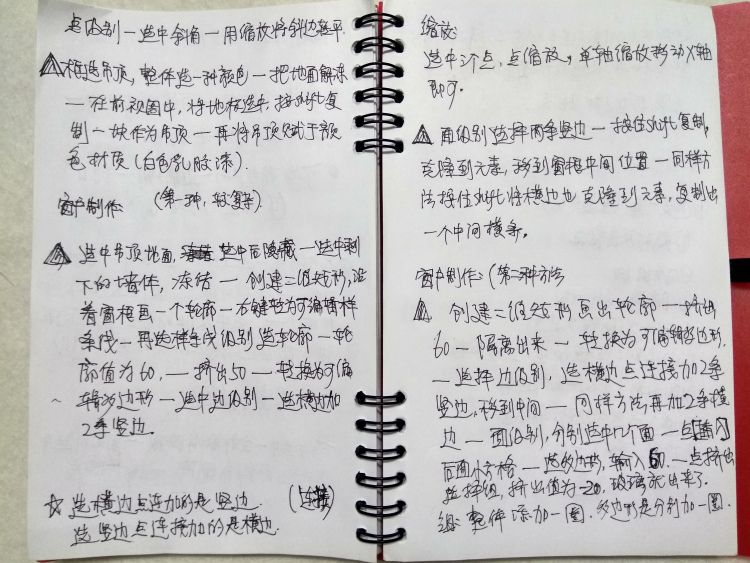 点级别一选中斜角一用缩放将斜边变平
框选吊顶，整体选一种颜色一把地面解冻
一在前视图中，将地框选中，按shift复
制一块作为吊顶一再将吊顶赋于颜
色材质（白色乳胶漆）.
窗户制作: （第一种，较复杂）.
选中吊顶地面, 选中后隐藏一选中剩
下的墙体，冻结一 创建二维矩形，沿
着窗框画一个轮廓一右键转为可编辑样
条线一再选样条线级别 选轮廓一轮
廓值为60, 一挤出50一转换为可编
辑多边形一选中边级别一选横边加
2条竖边.
☆ 选横边点连加的是竖边. （连接）
选竖边点连接加的是横边.
缩放:
选中3个点，点缩放，单轴缩放移动X轴
即可.
面级别选择两条竖边一按住shift复制,
克隆到元素，移到窗框中间位置一同样方
法按住shift将横边也克隆到元素，复制出
一个中间横条.
窗户制作:（第二种方法
创建二维矩形画出轮廓一挤出
60一隔离出来一转换为可编辑多边形.
一选择边级别，选横边点连接加2条
竖边，移到中间一同样方法再加2条横
边一面级别，分别选中几个面一点插入
后面小方格一选多边形，输入60.一点挤出
挤出值为-20. 玻璃就出来了.
组: 整体添加一圈. 多边形是分别加一圈.